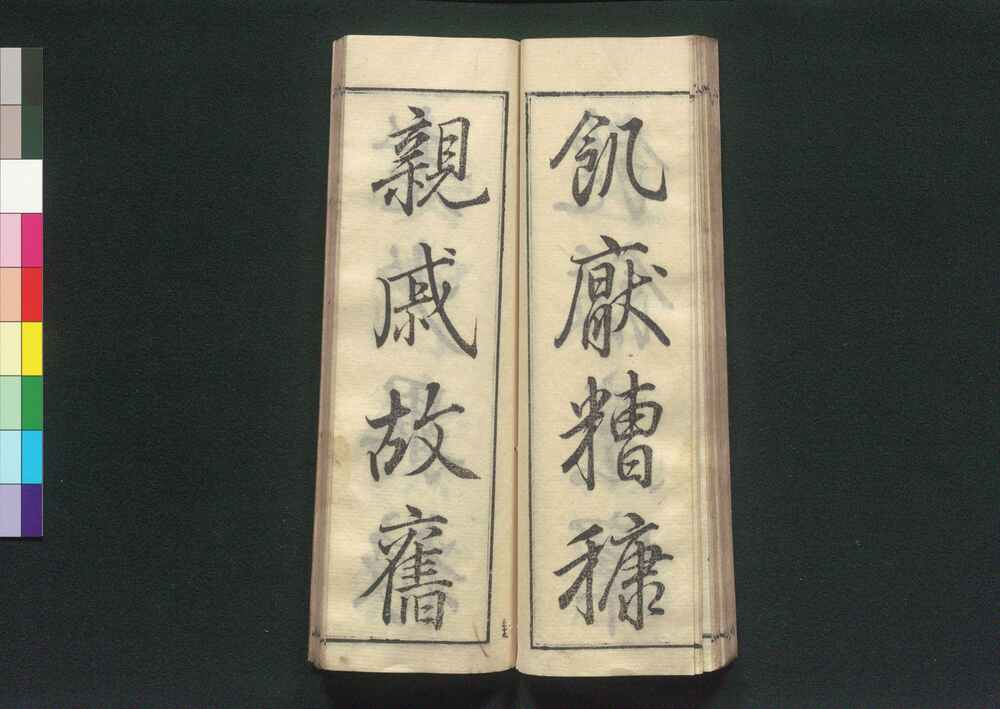 飢厭糟糠
親戚故舊